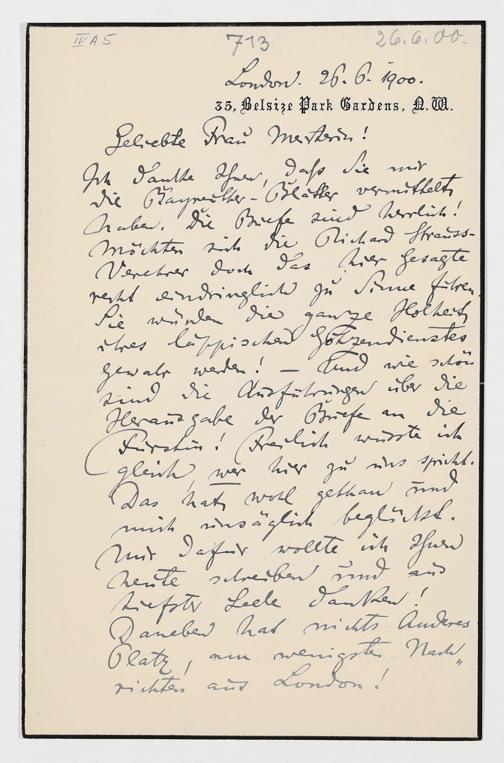 IV A 5 713 26.6.00.
London. 26. 6. 1900.
35, Belsize Park Gardens, N.W.
Geliebte Frau Meisterin!
Ich danke Ihnen, daß Sie mir
die Bayreuther-Blätter vermittelt
haben. Die Briefe sind herrlich!
Möchten sich die Richard Strauss-
Verehrer doch das hier Gesagte
recht eindringlich zu Sinne führen.
Sie würden die ganze Hohlheit
ihres läppischen Götzendienstes
gewahr werden! – Und wie schön
sind die Ausführungen über die
Herausgabe der Briefe an die
Fürstin! Freilich wusste ich
gleich, wer hier zu uns spricht.
Das hat wohl gethan und
mich unsäglich beglückt.
Nur dafür wollte ich Ihnen
heute schreiben und aus
tiefster Seele danken!
Daneben hat nichts Anderes
Platz, am wenigsten Nach-
richten aus London!